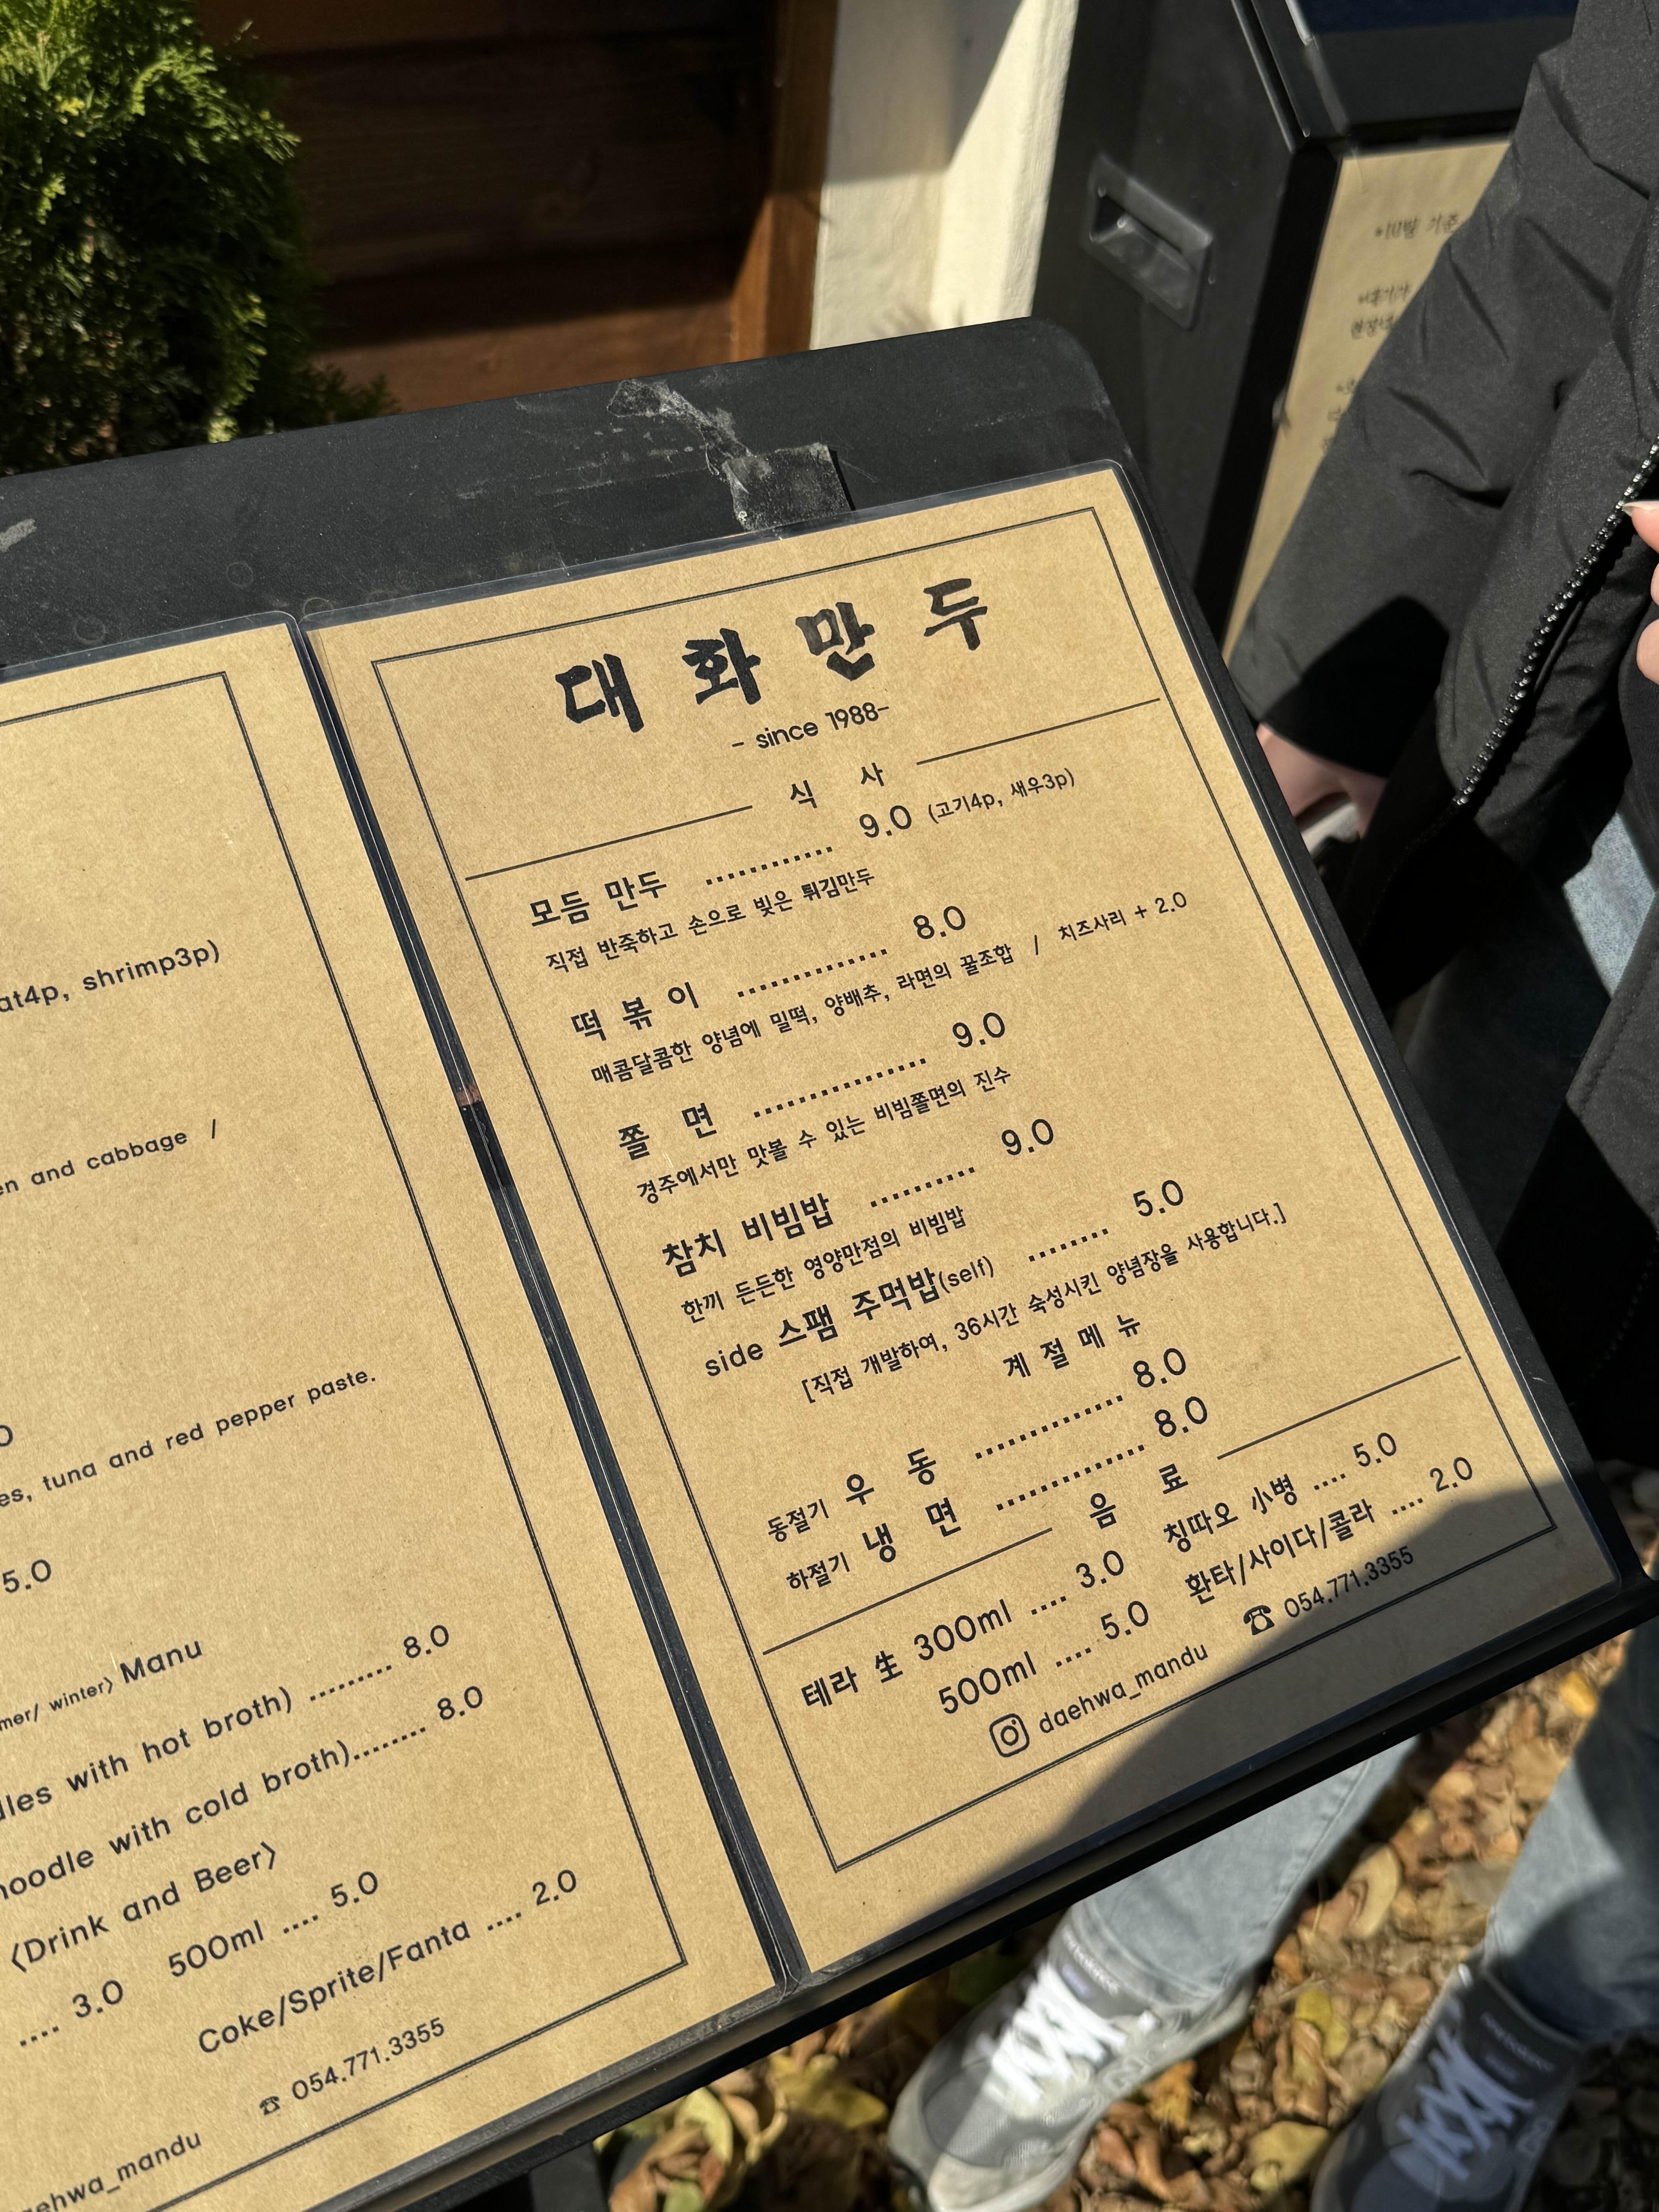 at4p, shrimp3p)
en and cabbage /
es, tuna and red pepper paste.
5.0
mer/ winter〉 Manu
les with hot broth) ........ 8.0
noodle with cold broth)........ 8.0
〈Drink and Beer〉
.... 3.0 500ml .... 5.0
Coke/Sprite/Fanta .... 2.0
☎ 054.771.3355
ehwa_mandu
대화만두
- since 1988-
식 사
모듬 만두 ............ 9.0 (고기4p, 새우3p)
직접 반죽하고 손으로 빚은 튀김만두
떡 볶 이 .............. 8.0
매콤달콤한 양념에 밀떡, 양배추, 라면의 꿀조합 / 치즈사리 + 2.0
쫄 면 ................ 9.0
경주에서만 맛볼 수 있는 비빔쫄면의 진수
참치 비빔밥 .......... 9.0
한끼 든든한 영양만점의 비빔밥
side 스팸 주먹밥(self) ........ 5.0
[직접 개발하여, 36시간 숙성시킨 양념장을 사용합니다.]
계 절 메 뉴
동절기 우 동 .............. 8.0
하절기 냉 면 .............. 8.0
음 료
테라 生 300ml .... 3.0 칭따오 小병 .... 5.0
500ml .... 5.0 환타/사이다/콜라 .... 2.0
daehwa_mandu ☎ 054.771.3355